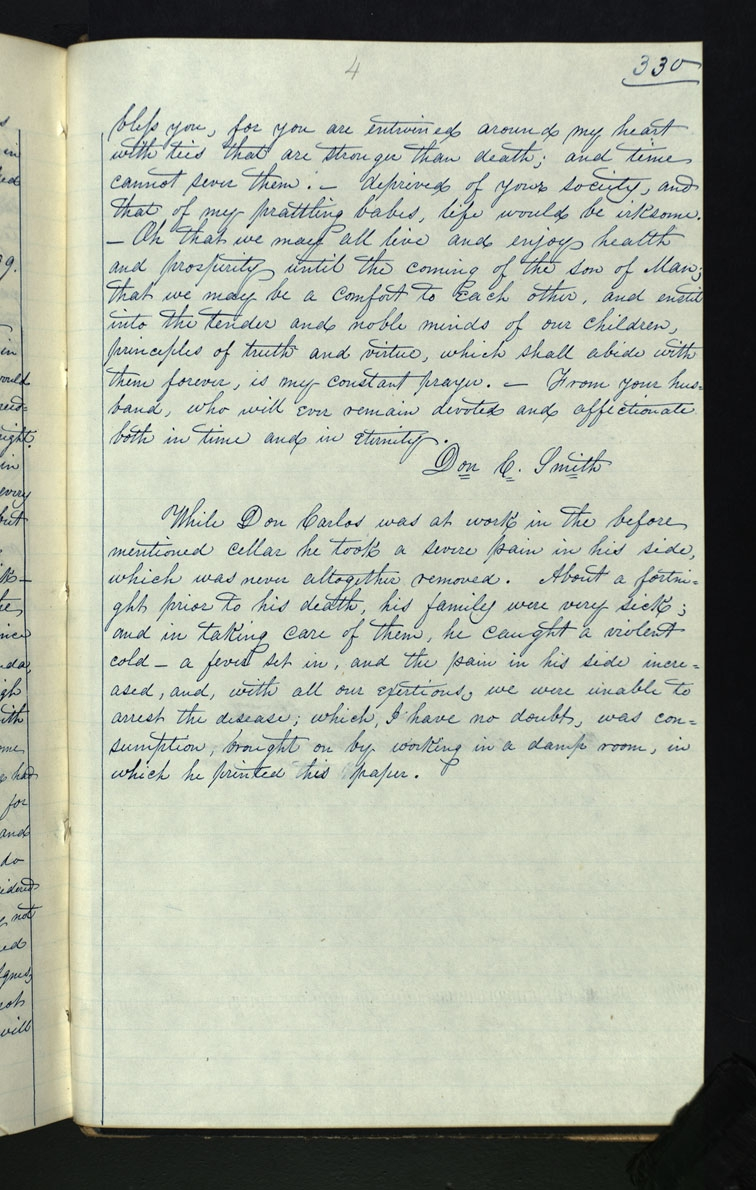 4
330
bless you, for you are entwined around my heart
with ties that are stronger than death; and time
cannot sever them. — deprived of your society, and
that of my prattling babes, life would be irksome.
— Oh that we may all live and enjoy health
and prosperity until the coming of the son of Man;
that we may be a comfort to Each other, and enstil
into the tender and noble minds of our children,
principles of truth and virtue, which shall abide with
them forever, is my constant prayer. — From your hus=
band, who will Ever remain devoted and affectionate
both in time and in Eternity.
Don C. Smith
While Don Carlos was at work in the before
mentioned cellar he took a severe pain in his side,
which was never altogether removed. About a fortni=
ght prior to his death, his family were very sick;
and in taking care of them, he caught a violent
cold — a fever set in, and the pain in his side incre=
ased, and, with all our exertions, we were unable to
arrest the disease; which, I have no doubt, was con=
sumption, brought on by working in a damp room, in
which he printed his paper.